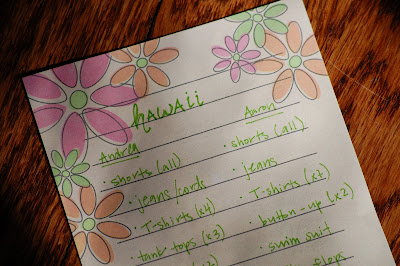 HAWAII
Andrea Aaron
· shorts (all) · shorts (all)
· jeans
· T-shirts (x4) · T-shirts (x4)
· tank tops (x3) · button-up (x2)
· swim suit
flops